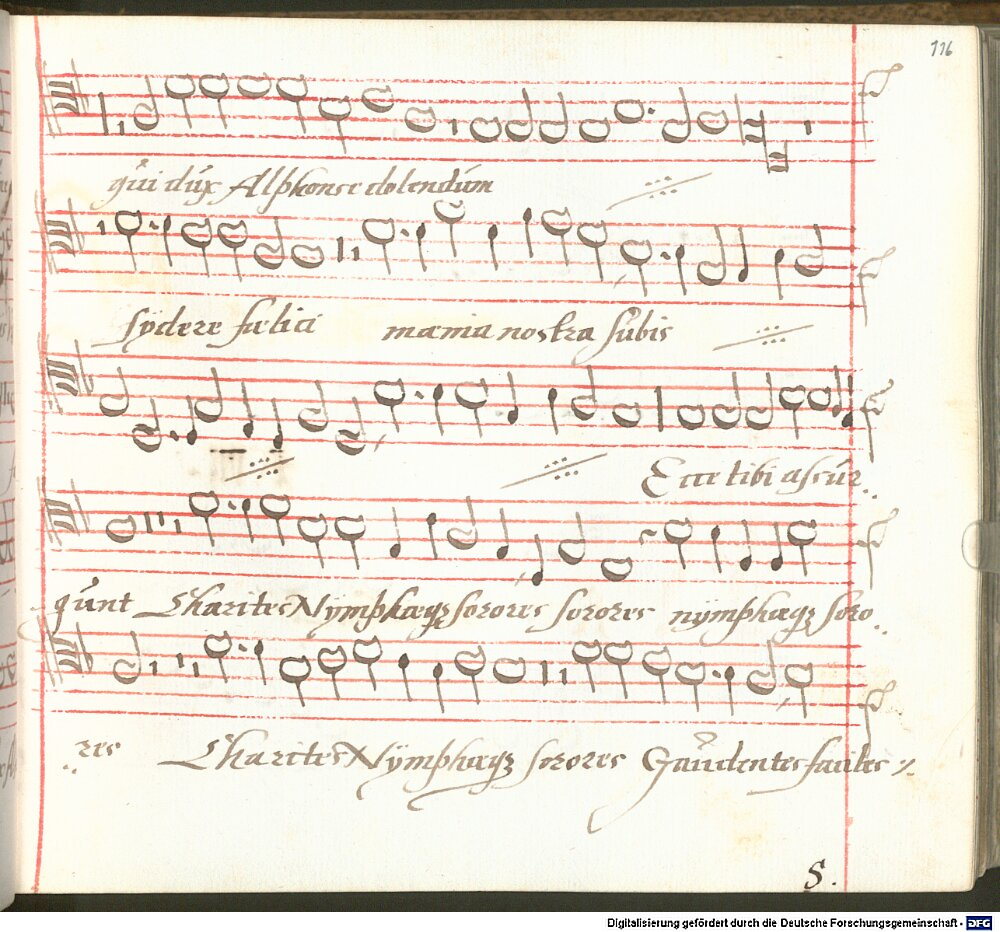 116
qui dux Alphonse dolendum
sÿdere fœlici mœnia nostra subis
Ecce tibi assur..
gunt Charites Nÿmphæqȝ sorores sorores nÿmphæqȝ soro..
..res Charites Nÿmphæqȝ sorores Gaudentes faciles
S.
Digitalisierung gefördert durch die Deutsche Forschungsgemeinschaft - DFG